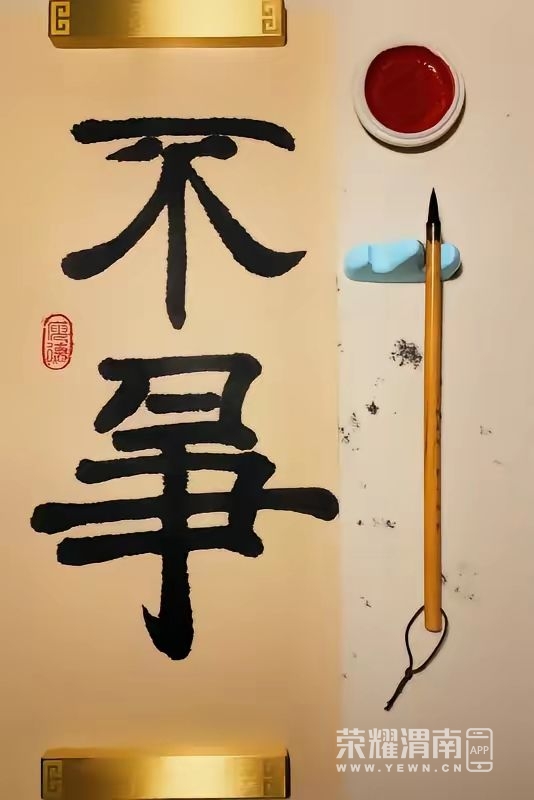 不爭
荣耀渭南
APP
WWW.YEWN.CN